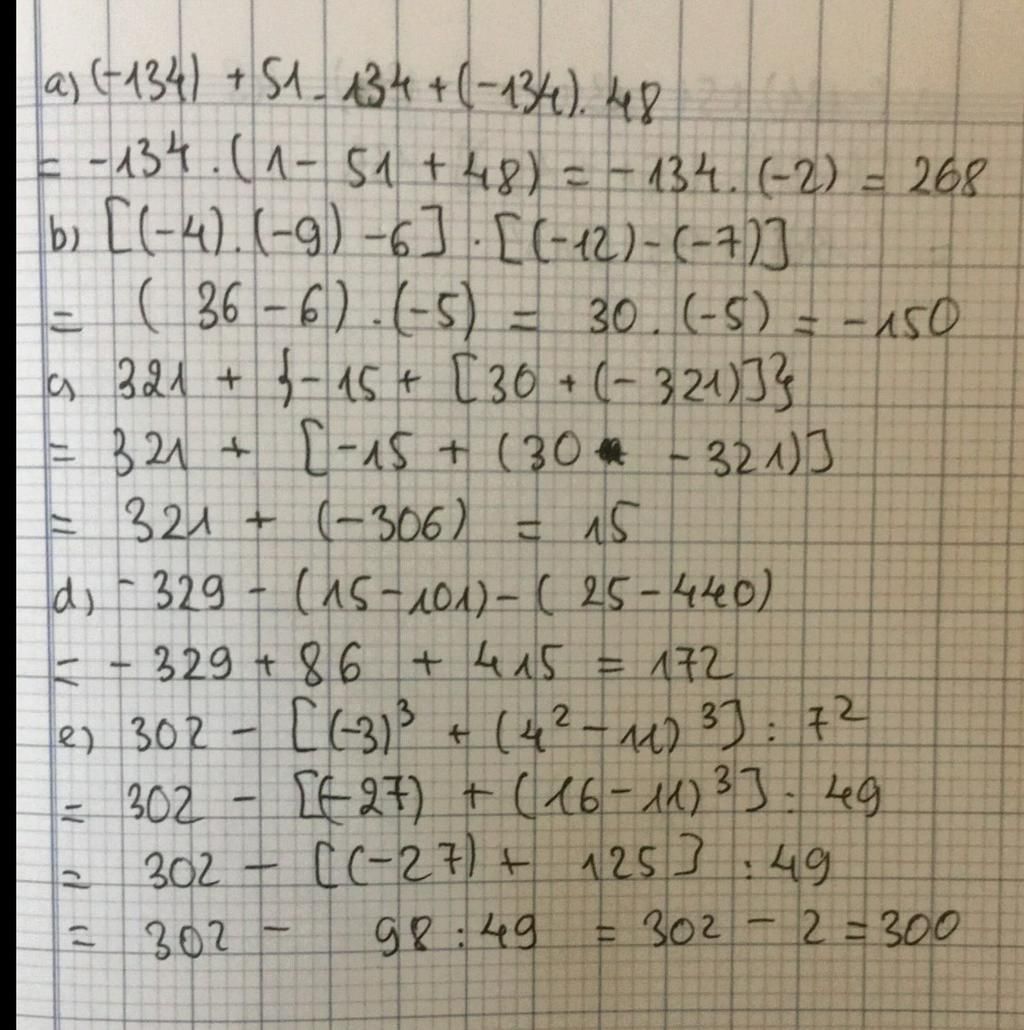 a) (-134) + 51 . 134 + (-134). 48
= -134 . ( 1 - 51 + 48) = -134. (-2) = 268
b) [(-4).(-9) -6] . [(-12)-(-7)]
= ( 36 - 6) .(-5) = 30. (-5) = -150
c) 321 + {-15 + [30 + (-321)]}
= 321 + [-15 + (30 - 321)]
= 321 + (-306) = 15
d) -329 - (15-101) - ( 25-440)
= - 329 + 86 + 415 = 172
e) 302 - [(-3)³ + (4² - 11)³] : 7²
= 302 - [(-27) + (16-11)³] : 49
= 302 - [(-27) + 125] : 49
= 302 - 98 : 49 = 302 - 2 = 300